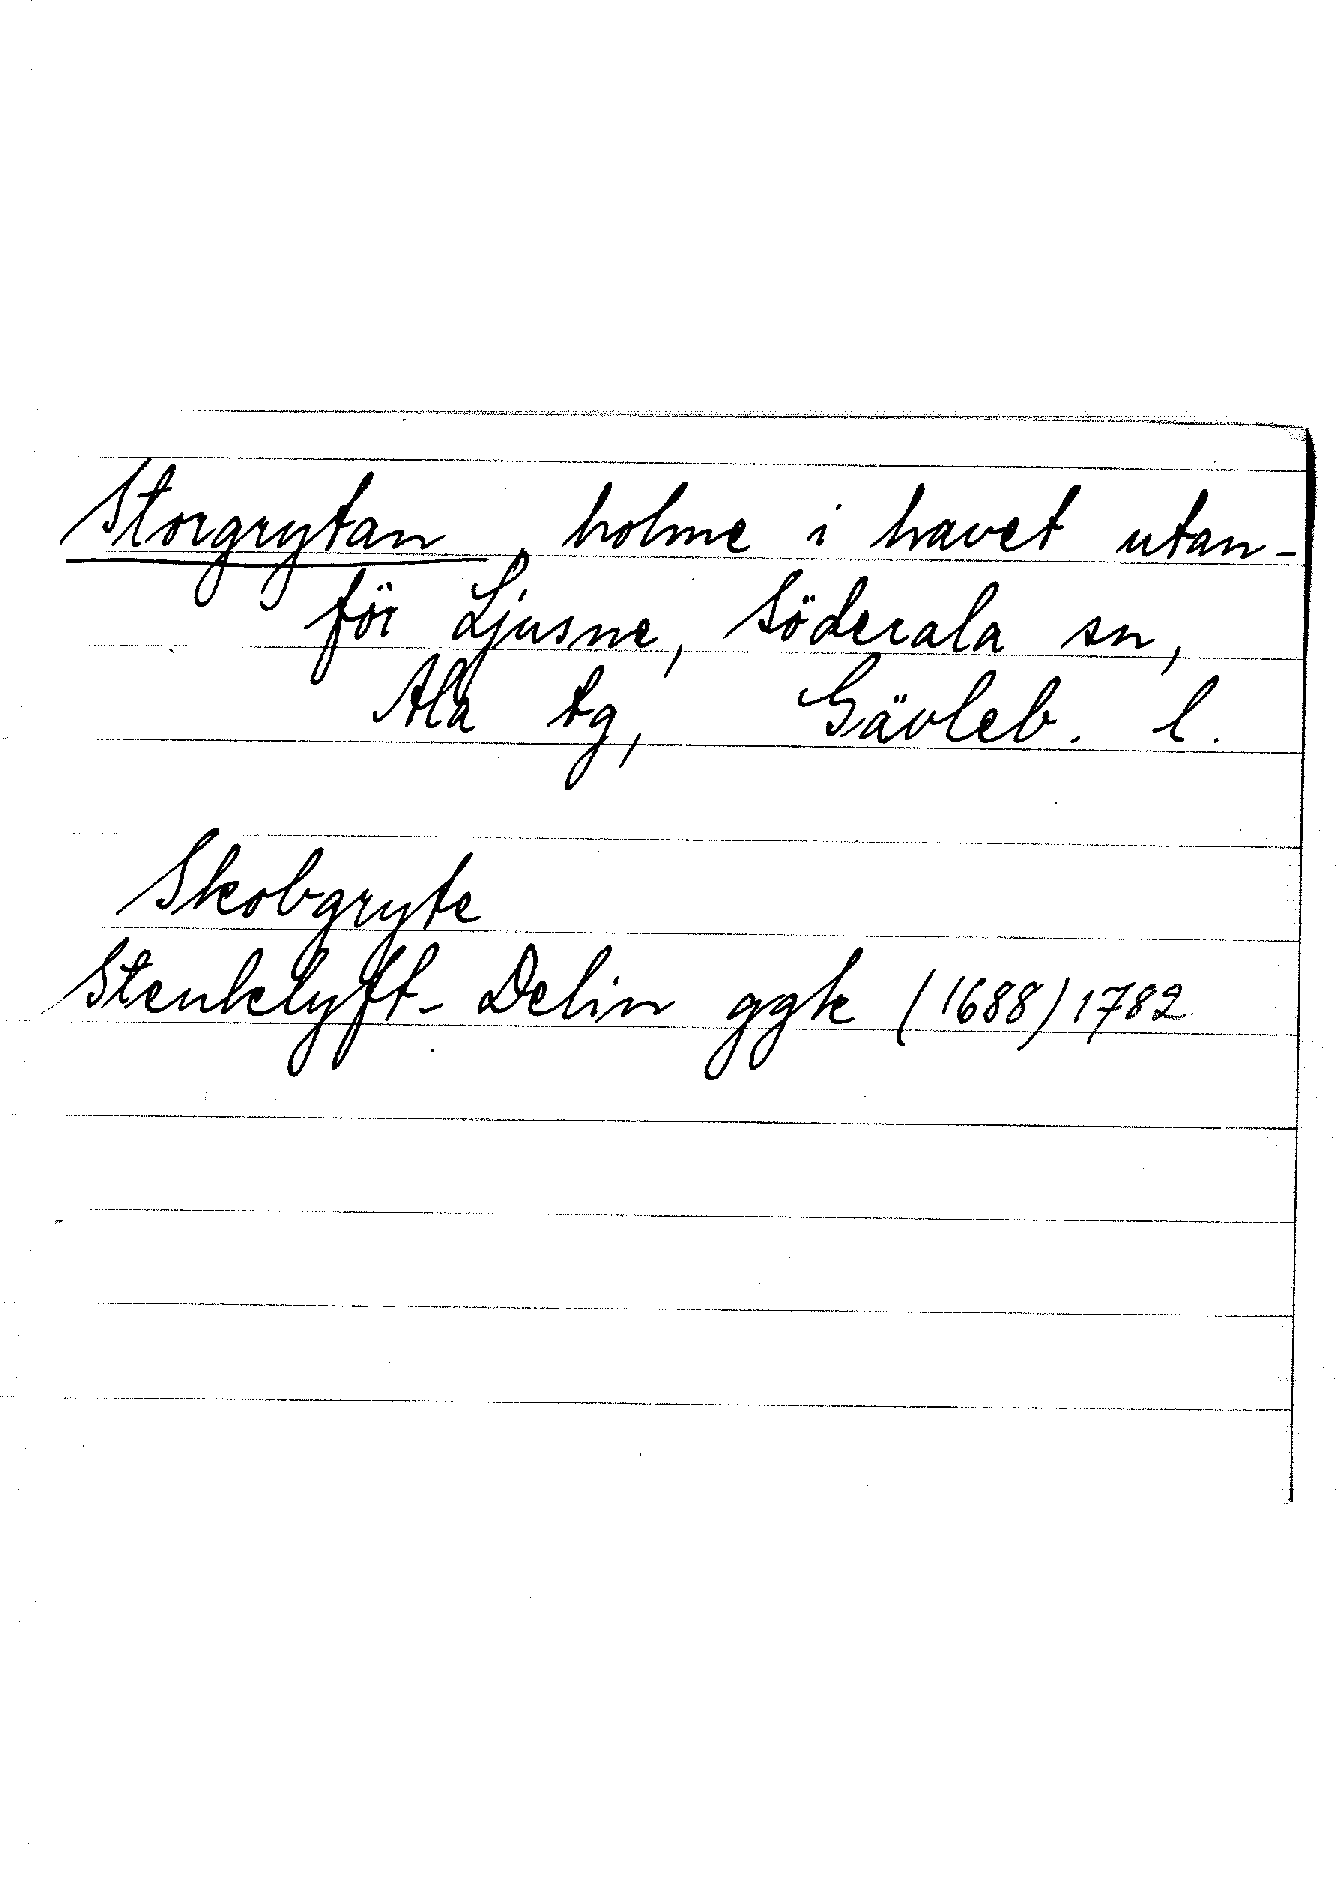 Storgrytan, holme i havet utan-
för Ljusne, Söderala sn,
Ala tg, Gävleb. l.
Skobgryte
Stenklyft- Delin ggk (1688) 1782